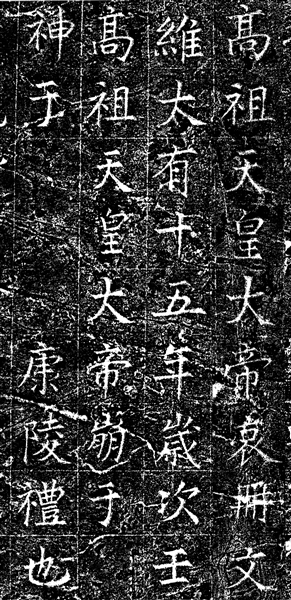 高祖天皇大帝哀冊文
維大有十五年歲次壬
高祖天皇大帝崩于
神于康陵禮也